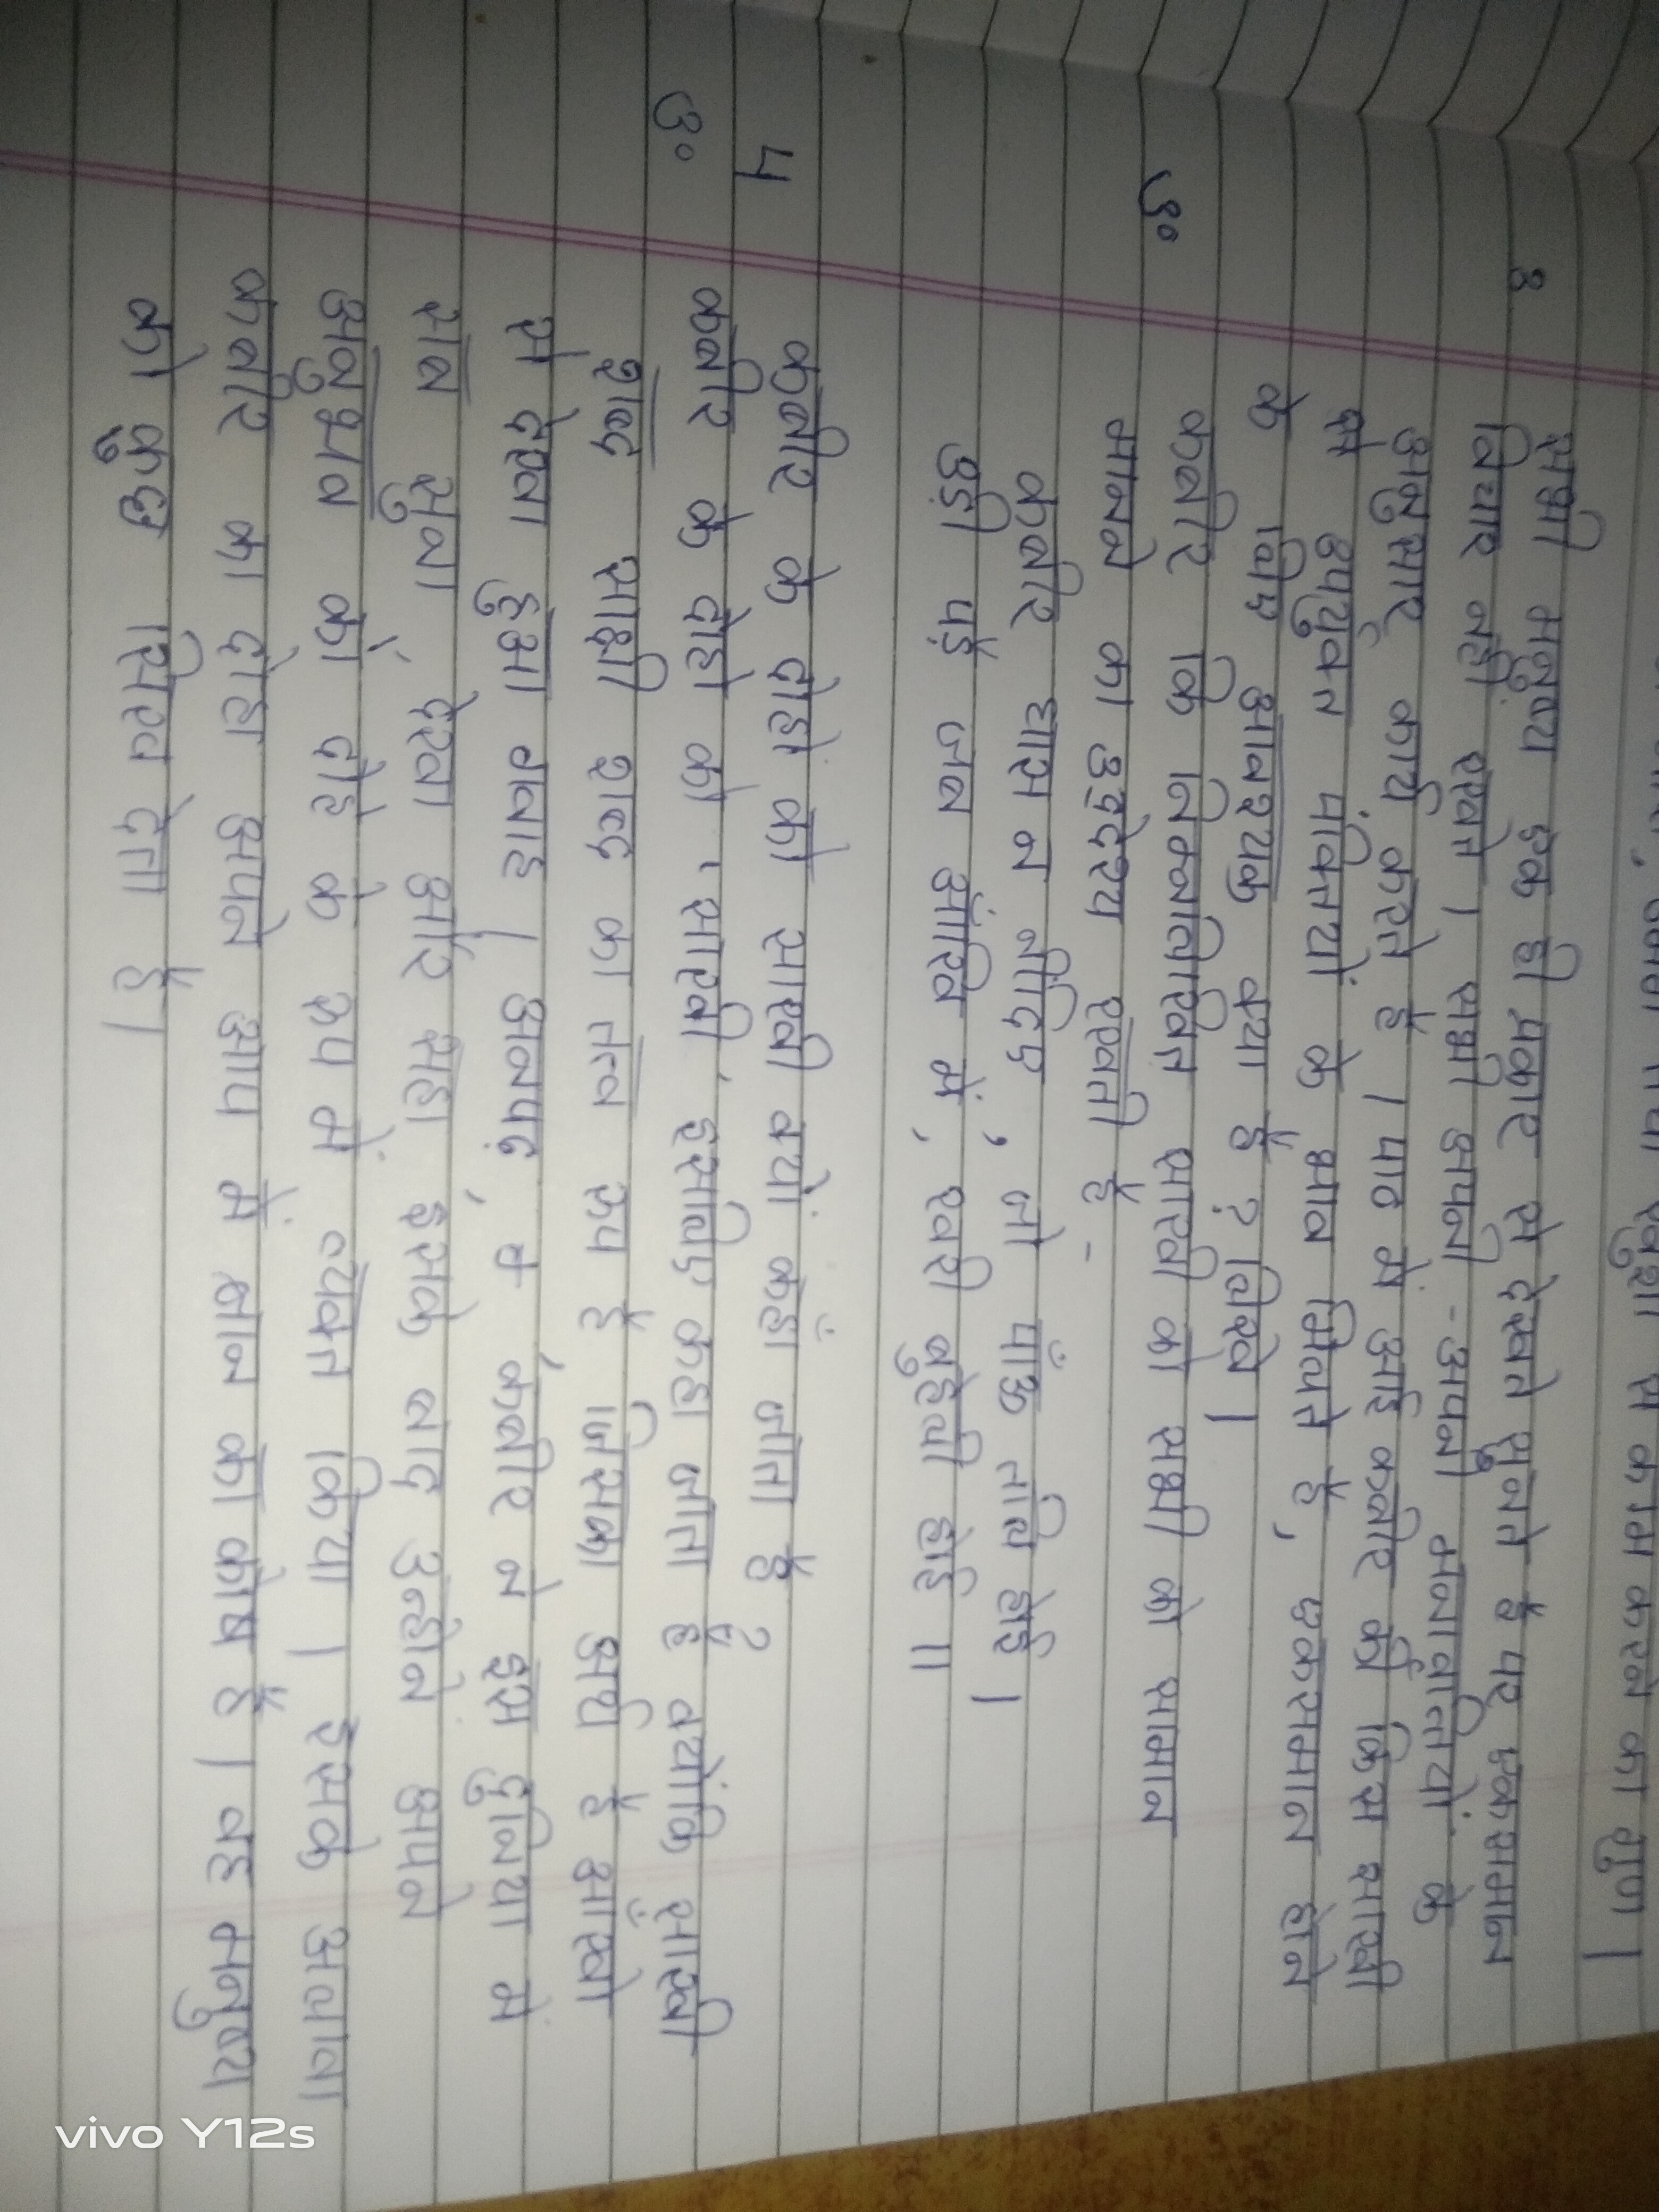 खुशी से काम करने का गुण।
3 सभी मनुष्य एक ही प्रकार से देखते सुनते है पर एकसमान
विचार नहीं रखते। सभी अपनी - अपनी मनोवृत्तियों के
अनुसार कार्य करते है। पाठ में आई कबीर की किस साखी
से उपयुक्त पंक्तियों के भाव मिलते है, एकसमान होने
के लिए आवश्यक क्या है? लिखे।
उ॰ कबीर कि निम्नलिखित साखी को सभी को समान
मानने का उद्देश्य रखती है -
कबीर घास न नींदिए, जो पाँऊ तलि होई।
उड़ी पड़ै जब आँखि में, खरी दुहेली होई॥
५ कबीर के दोहो को साखी क्यों कहा जाता है ?
उ॰ कबीर के दोहो को 'साखी' इसलिए कहा जाता है क्योंकि साखी
शब्द साक्षी शब्द का तत्व रूप है जिसका अर्थ है आँखो
से देखा हुआ गवाह। अनपढ़, कबीर ने इस दुनिया में
सब सुना, देखा और सहा इसके बाद उन्होने अपने
अनुभव को दोहे के रूप में व्यक्त किया। इसके अलावा
कबीर का दोहा अपने आप में ज्ञान का कोष है। वह मनुष्य
को कुछ सिख देता है।
vivo Y12s